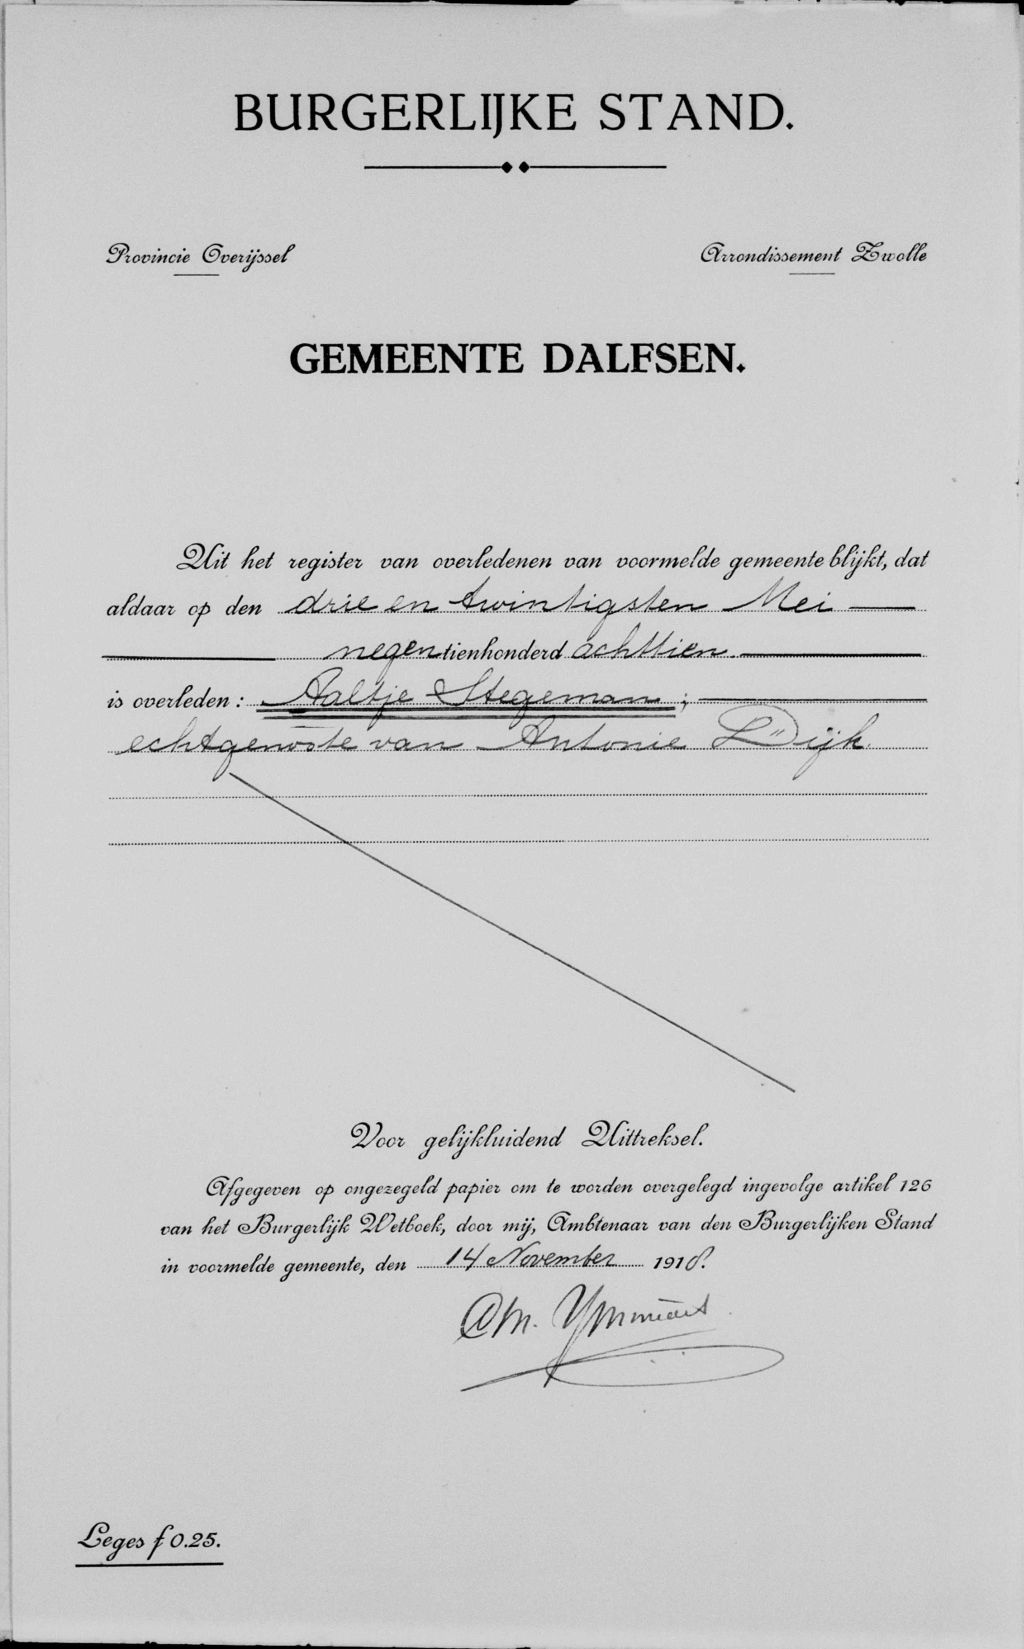 BURGERLIJKE STAND.
Provincie Overijssel
Arrondissement Zwolle
GEMEENTE DALFSEN.
Uit het register van overledenen van voormelde gemeente blijkt, dat
aldaar op den drie en twintigsten Mei
negentienhonderd achttien
is overleden: Aaltje Stegeman;
echtgenoote van Antonie Dijk.
Voor gelijkluidend Uittreksel.
Afgegeven op ongezegeld papier om te worden overgelegd ingevolge artikel 126
van het Burgerlijk Wetboek, door mij, Ambtenaar van den Burgerlijken Stand
in voormelde gemeente, den 14 November 1918.
Leges f 0.25.